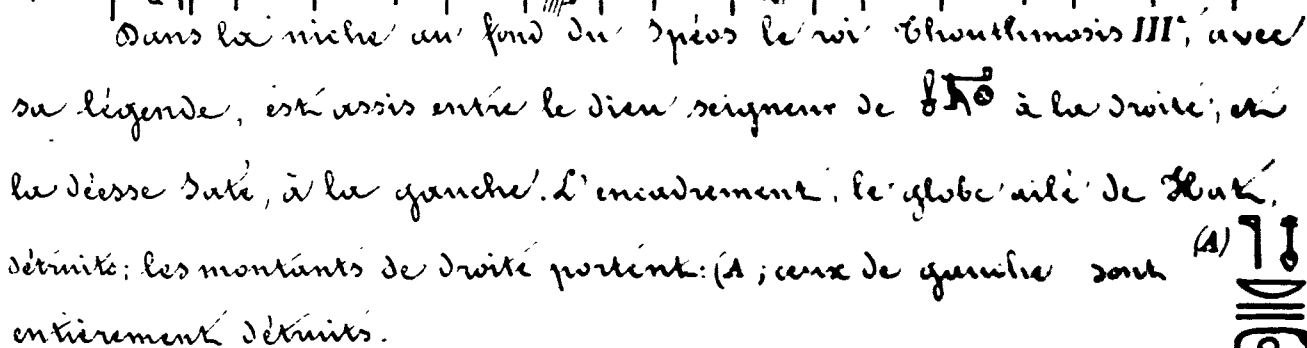 Dans la niche au fond du Spéos le roi Thouthmosis III<sup>e</sup>, avec
sa légende, est assis entre le dieu seigneur de à la droite, et
la déesse Saté, à la gauche. L'encadrement, le globe ailé de Hat,
détruits; les montants de droite portent: (A; ceux de gauche sont (A)
entièrement détruits.